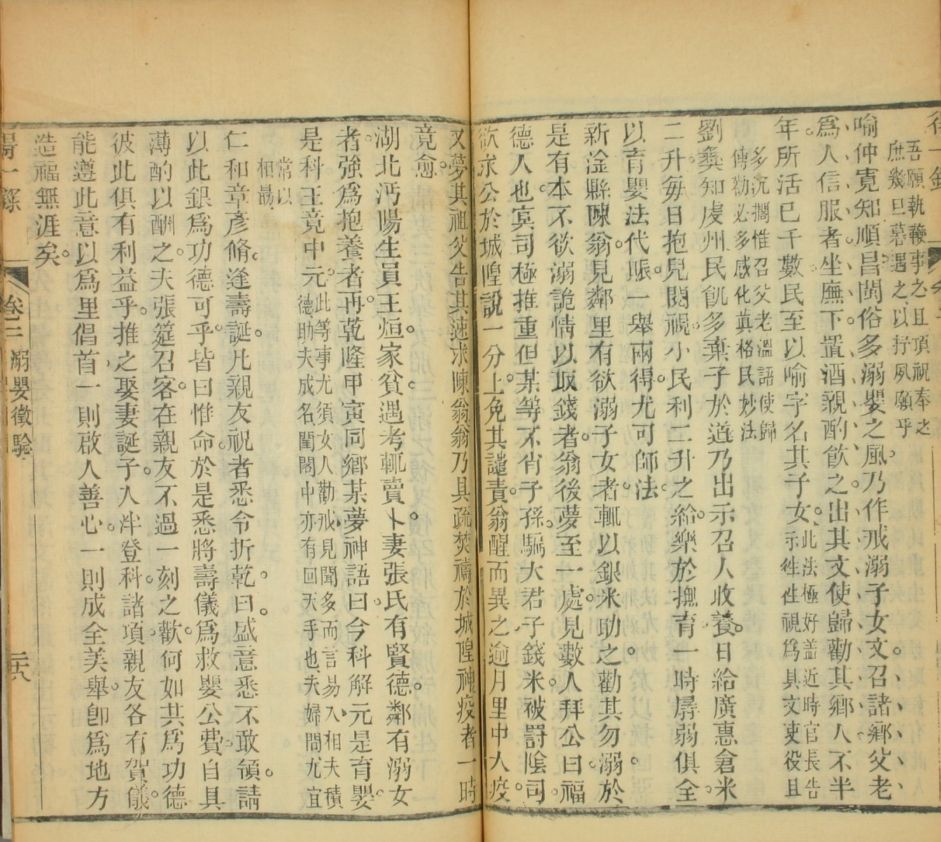 吾願執鞭事之且頂祝奉之
庶幾旦暮遇之以抒夙願乎
喻仲寬知順昌閩俗多溺嬰之風乃作戒溺子女文召諸鄉父老
爲人信服者坐廡下置酒親酌飲之出其文使歸勸其鄉人不半
年所活已千數民至以喻字名其子女此法極好蓋近時官長告
示往往視爲具文吏役且
多沉擱惟召父老溫語使歸
傳勸必多感化眞格民妙法
劉彝知虔州民飢多棄子於道乃出示召人收養日給廣惠倉米
二升每日抱兒閱視小民利二升之給樂於撫育一時孱弱俱全
以育嬰法代賑一舉兩得尤可師法
新淦縣陳翁見鄰里有欲溺子女者輒以銀米助之勸其勿溺於
是有本不欲溺詭情以取錢者翁後夢至一處見數人拜公曰福
德人也冥司極推重但某等不肖子孫騙大君子錢米被罰陰司
欲求公於城隍說一分上免其譴責翁醒而異之逾月里中大疫
又夢其祖父告其速求陳翁翁乃具疏焚禱於城隍神疫者一時
竟愈
湖北沔陽生員王烜家貧遇考輒賣卜妻張氏有賢德鄰有溺女
者強爲抱養者再乾隆甲寅同鄉某夢神語曰今科解元是育嬰
是科王竟中元此等事尤須女人勸戒見聞多而言易入相夫積
德助夫成名閨閣中亦有回天手也夫婦間尤宜
常以
相勗
仁和章彥脩逢壽誕凡親友祝者悉令折乾曰盛意悉不敢領請
以此銀爲功德可乎皆曰惟命於是悉將壽儀爲救嬰公費自具
薄酌以酬之夫張筵召客在親友不過一刻之歡何如共爲功德
彼此俱有利益乎推之娶妻誕子入泮登科諸項親友各有賀儀
能遵此意以爲里倡首一則啟人善心一則成全美舉卽爲地方
造福無涯矣
得一錄
卷三
溺嬰徵驗
二六